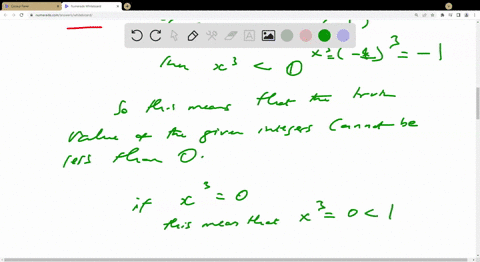 then x³ < 0 x³=(-1)³ = -1
So this means that the truth
value of the given integers cannot be
less than 0.
if x³ = 0
this mean that x³ = 0 < 1